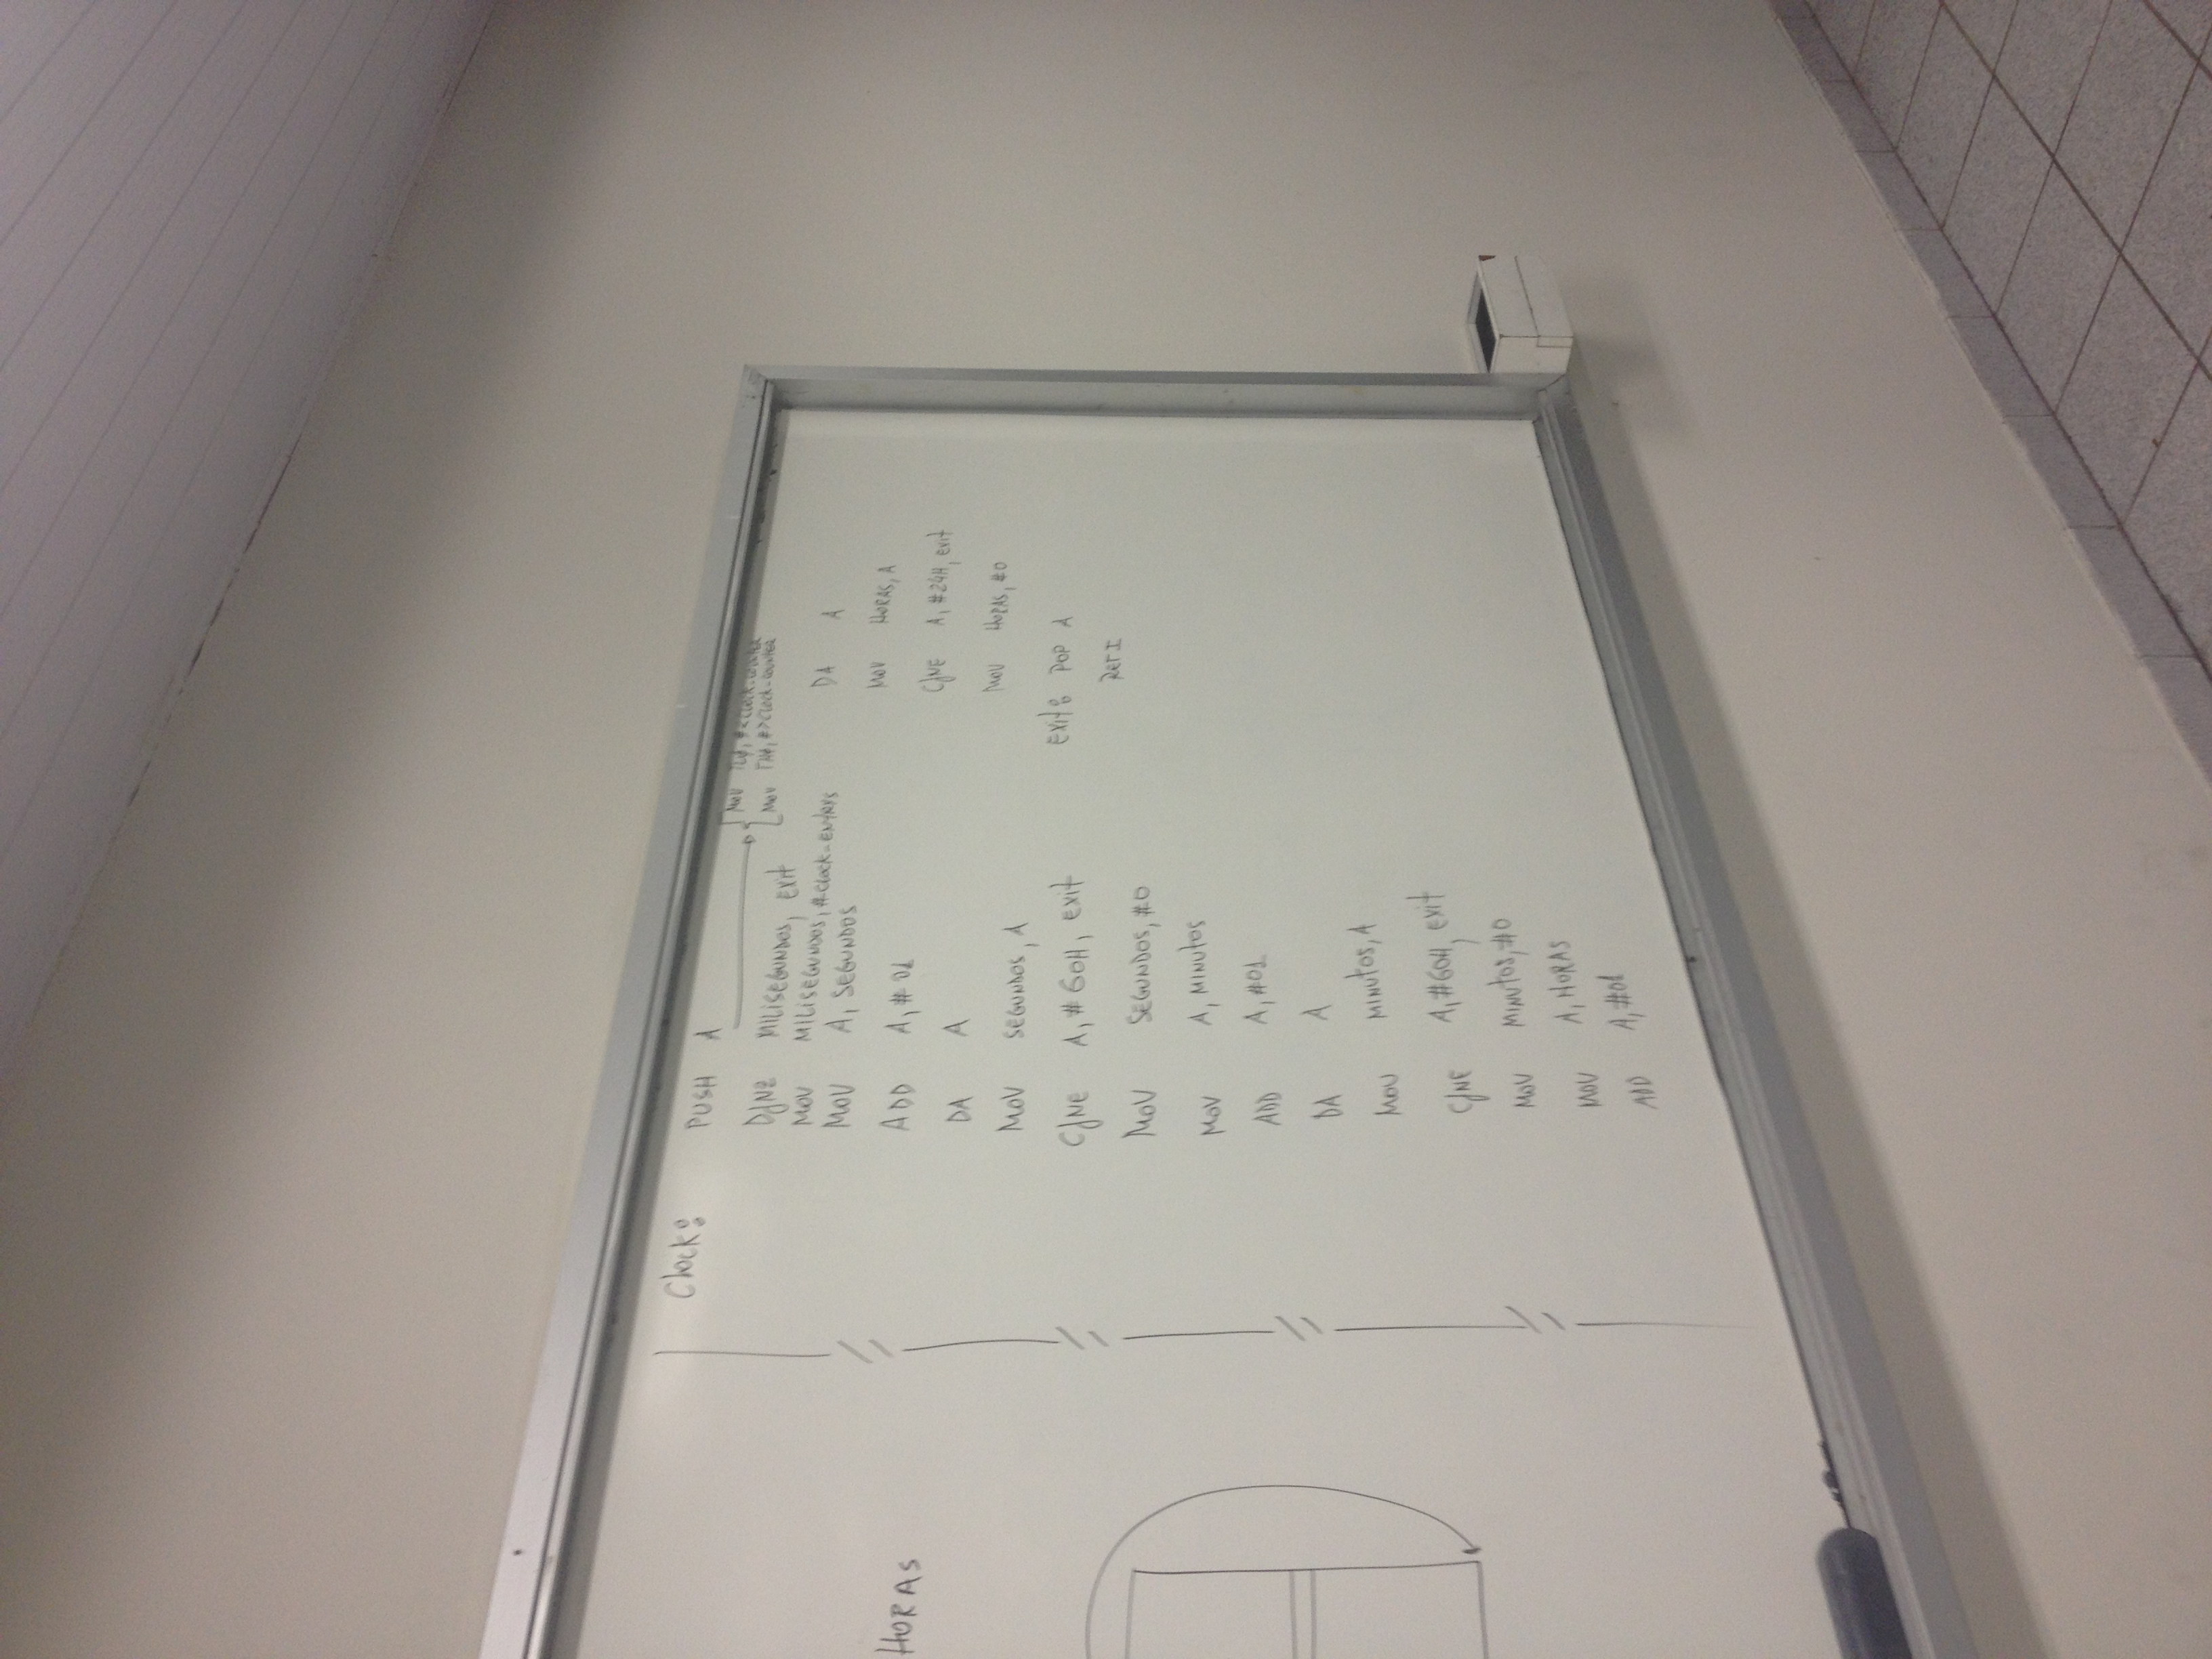 HORAS
Clock:
PUSH A
MOV TLØ, #<Clock-counter
MOV THØ, #>Clock-counter
DJNZ MILISEGUNDOS, exit
MOV MILISEGUNDOS, #clock-ENTRYS
MOV A, SEGUNDOS
ADD A, #01
DA A
MOV SEGUNDOS, A
CJNE A, #60H, exit
MOV SEGUNDOS, #0
MOV A, MINUTOS
ADD A, #01
DA A
MOV MINUTOS, A
CJNE A, #60H, exit
MOV MINUTOS, #0
MOV A, HORAS
ADD A, #01
DA A
MOV HORAS, A
CJNE A, #24H, exit
MOV HORAS, #0
Exit: POP A
RETI